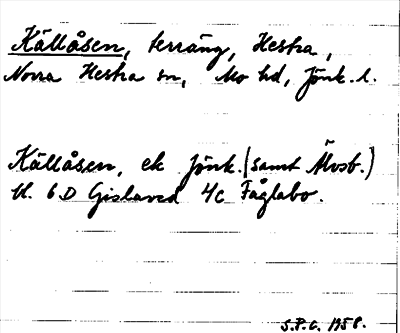 Källåsen, terräng, Hestra,
Norra Hestra sn, Mo hd, Jönk. l.
Källåsen, ek Jönk. (samt Älvsb.)
bl. 6D Gislaved 4c Fåglabo.
S.P.G. 1958.